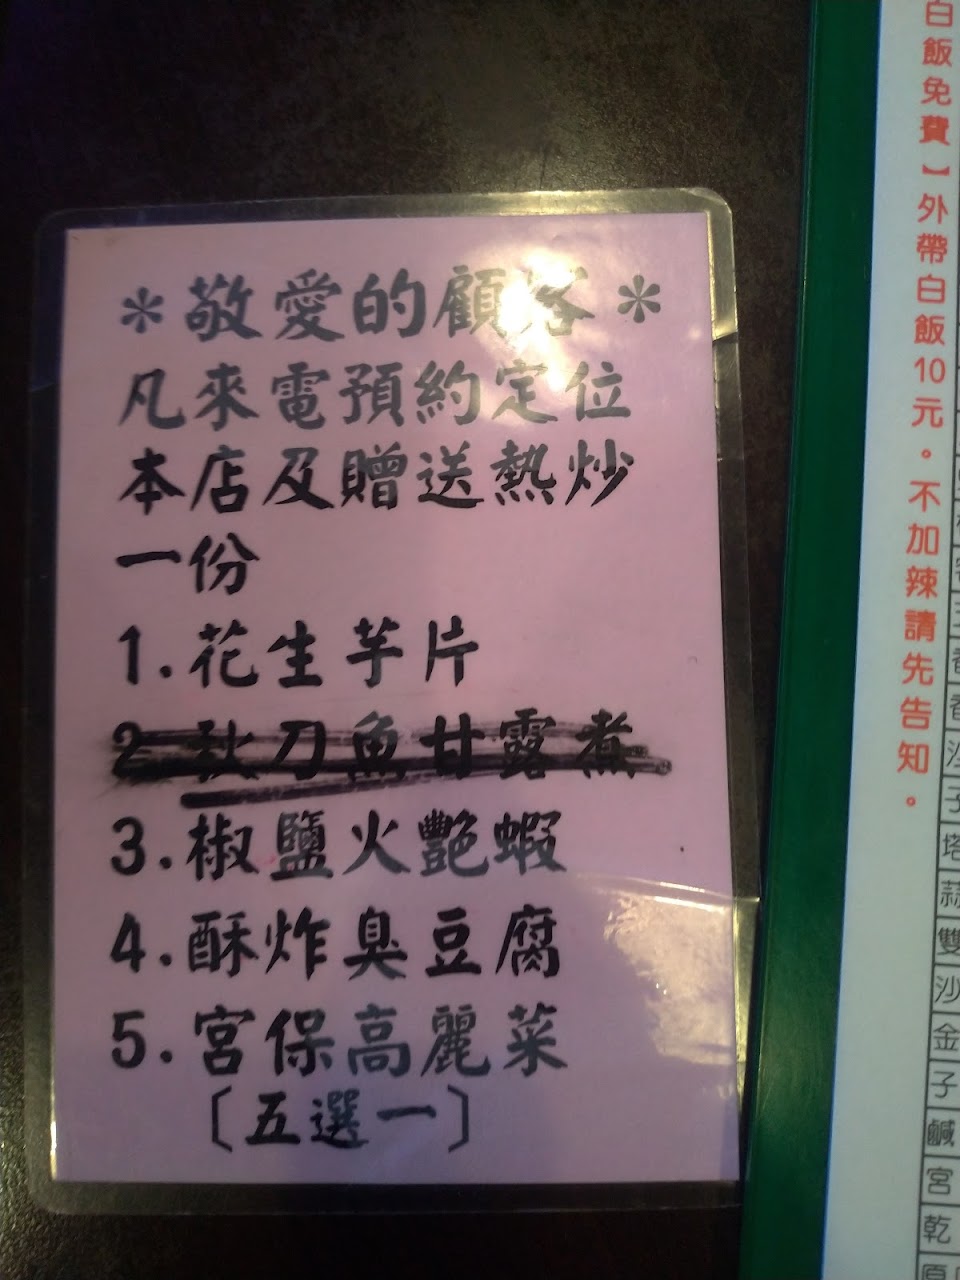 ＊敬愛的顧客＊
凡來電預約定位
本店及贈送熱炒
一份
1.花生芋片
2 秋刀魚甘露煮
3.椒鹽火艷蝦
4.酥炸臭豆腐
5.宮保高麗菜
〔五選一〕
白飯免費】外帶白飯10元。不加辣請先告知。
塔
蒜
雙
沙
金
子
鹹
宮
乾